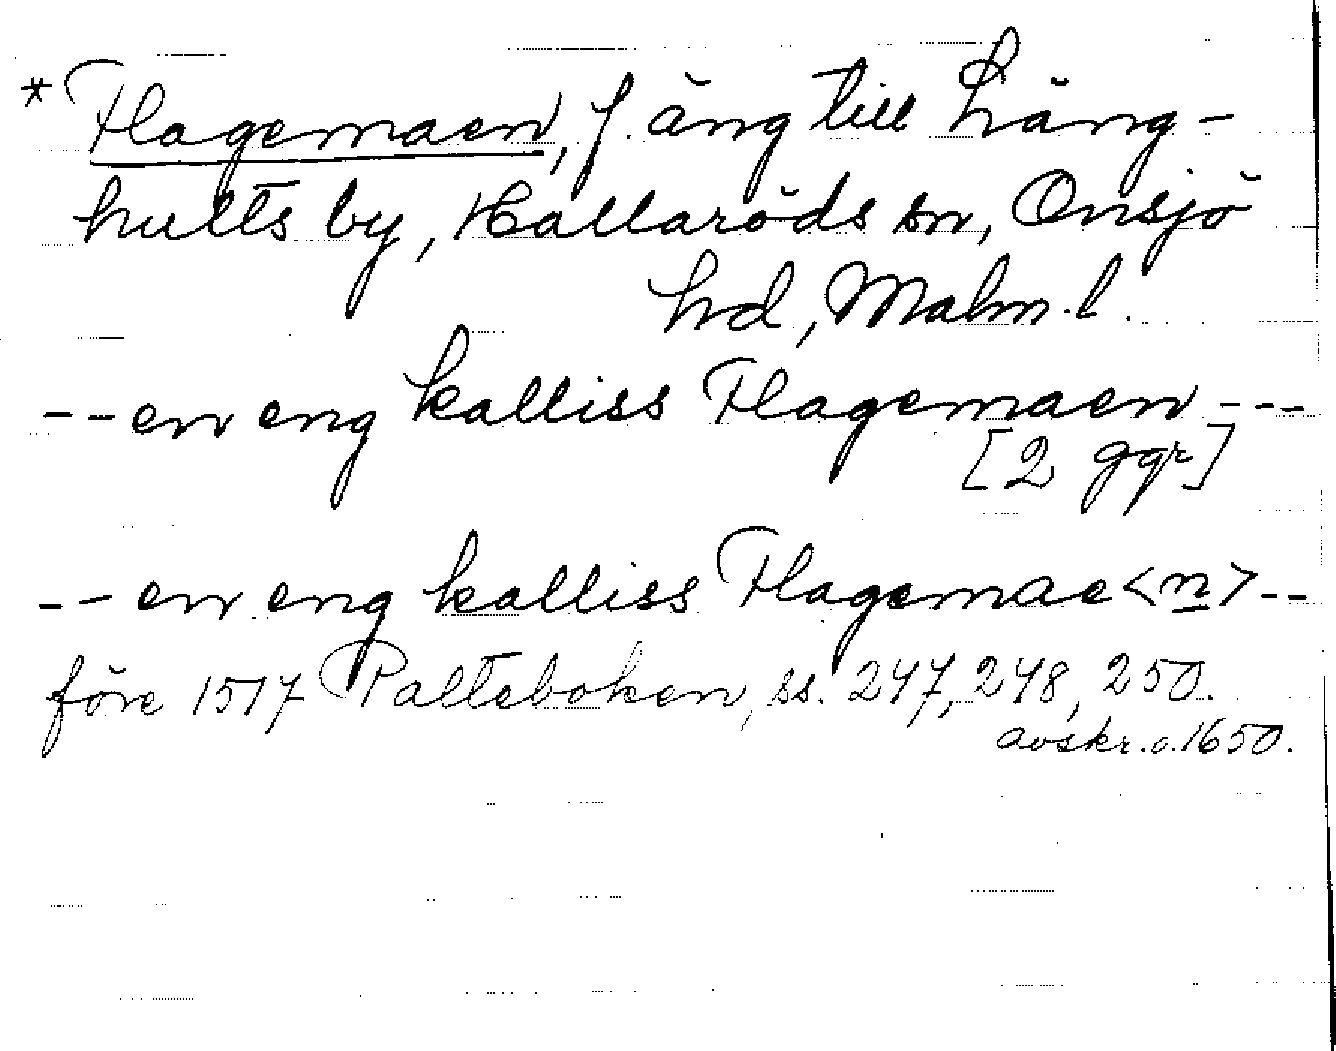 * Flagemaen, f. äng till Häng-
hults by, Hallaröds sn, Onsjö
hd, Malm. l.
-- en eng kalliss Flagemaen ---
[2 ggr]
-- en eng kalliss Flagemae<n> --
före 1517 Palteboken, ss. 247, 248, 250.
avskr. o. 1650.